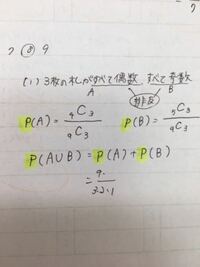 7 ⑧ 9
(1) 3枚の札がすべて偶数 すべて奇数
A B
排反
P(A) = ₄C₃ / ₉C₃ P(B) = ₅C₃ / ₉C₃
P(A∪B) = P(A) + P(B)
= 9. / 3.2.1